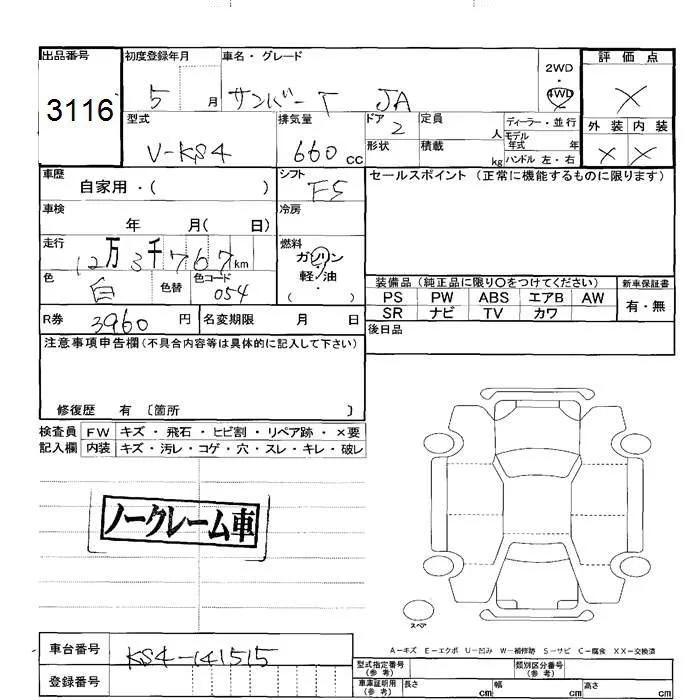 出品番号 初度登録年月 車名・グレード 評価点
3116 5 月 サンバーT JA 2WD 4WD X
型式 排気量 ドア 2 定員 人 ディーラー・並行 外装 内装
V-KS4 660 cc 形状 積載 kg モデル年式 年 ハンドル 左・右 X X
車歴 自家用・( ) シフト F5 セールスポイント (正常に機能するものに限ります)
車検 年 月( 日) 冷房
走行 12万3千767km 燃料 ガソリン・軽・油 ( )
色 白 色替 色コード 054
装備品 (純正品に限り〇をつけてください) 新車保証書
PS PW ABS エアB AW 有・無
SR ナビ TV カワ
R券 3960 円 名変期限 月 日 後日品
注意事項申告欄(不具合内容等は具体的に記入して下さい)
修復歴 有 〔箇所 〕
検査員 FW キズ・飛石・ヒビ割・リペア跡・×要
記入欄 内装 キズ・汚レ・コゲ・穴・スレ・キレ・破レ
ノークレーム車
スペア
A-キズ E-エクボ U-凹み W-補修跡 S-サビ C-腐食 XX-交換済
車台番号 KS4-141515
登録番号
型式指定番号(参考) 類別区分番号(参考)
車庫証明用(参考) 長さ cm 幅 cm 高さ cm